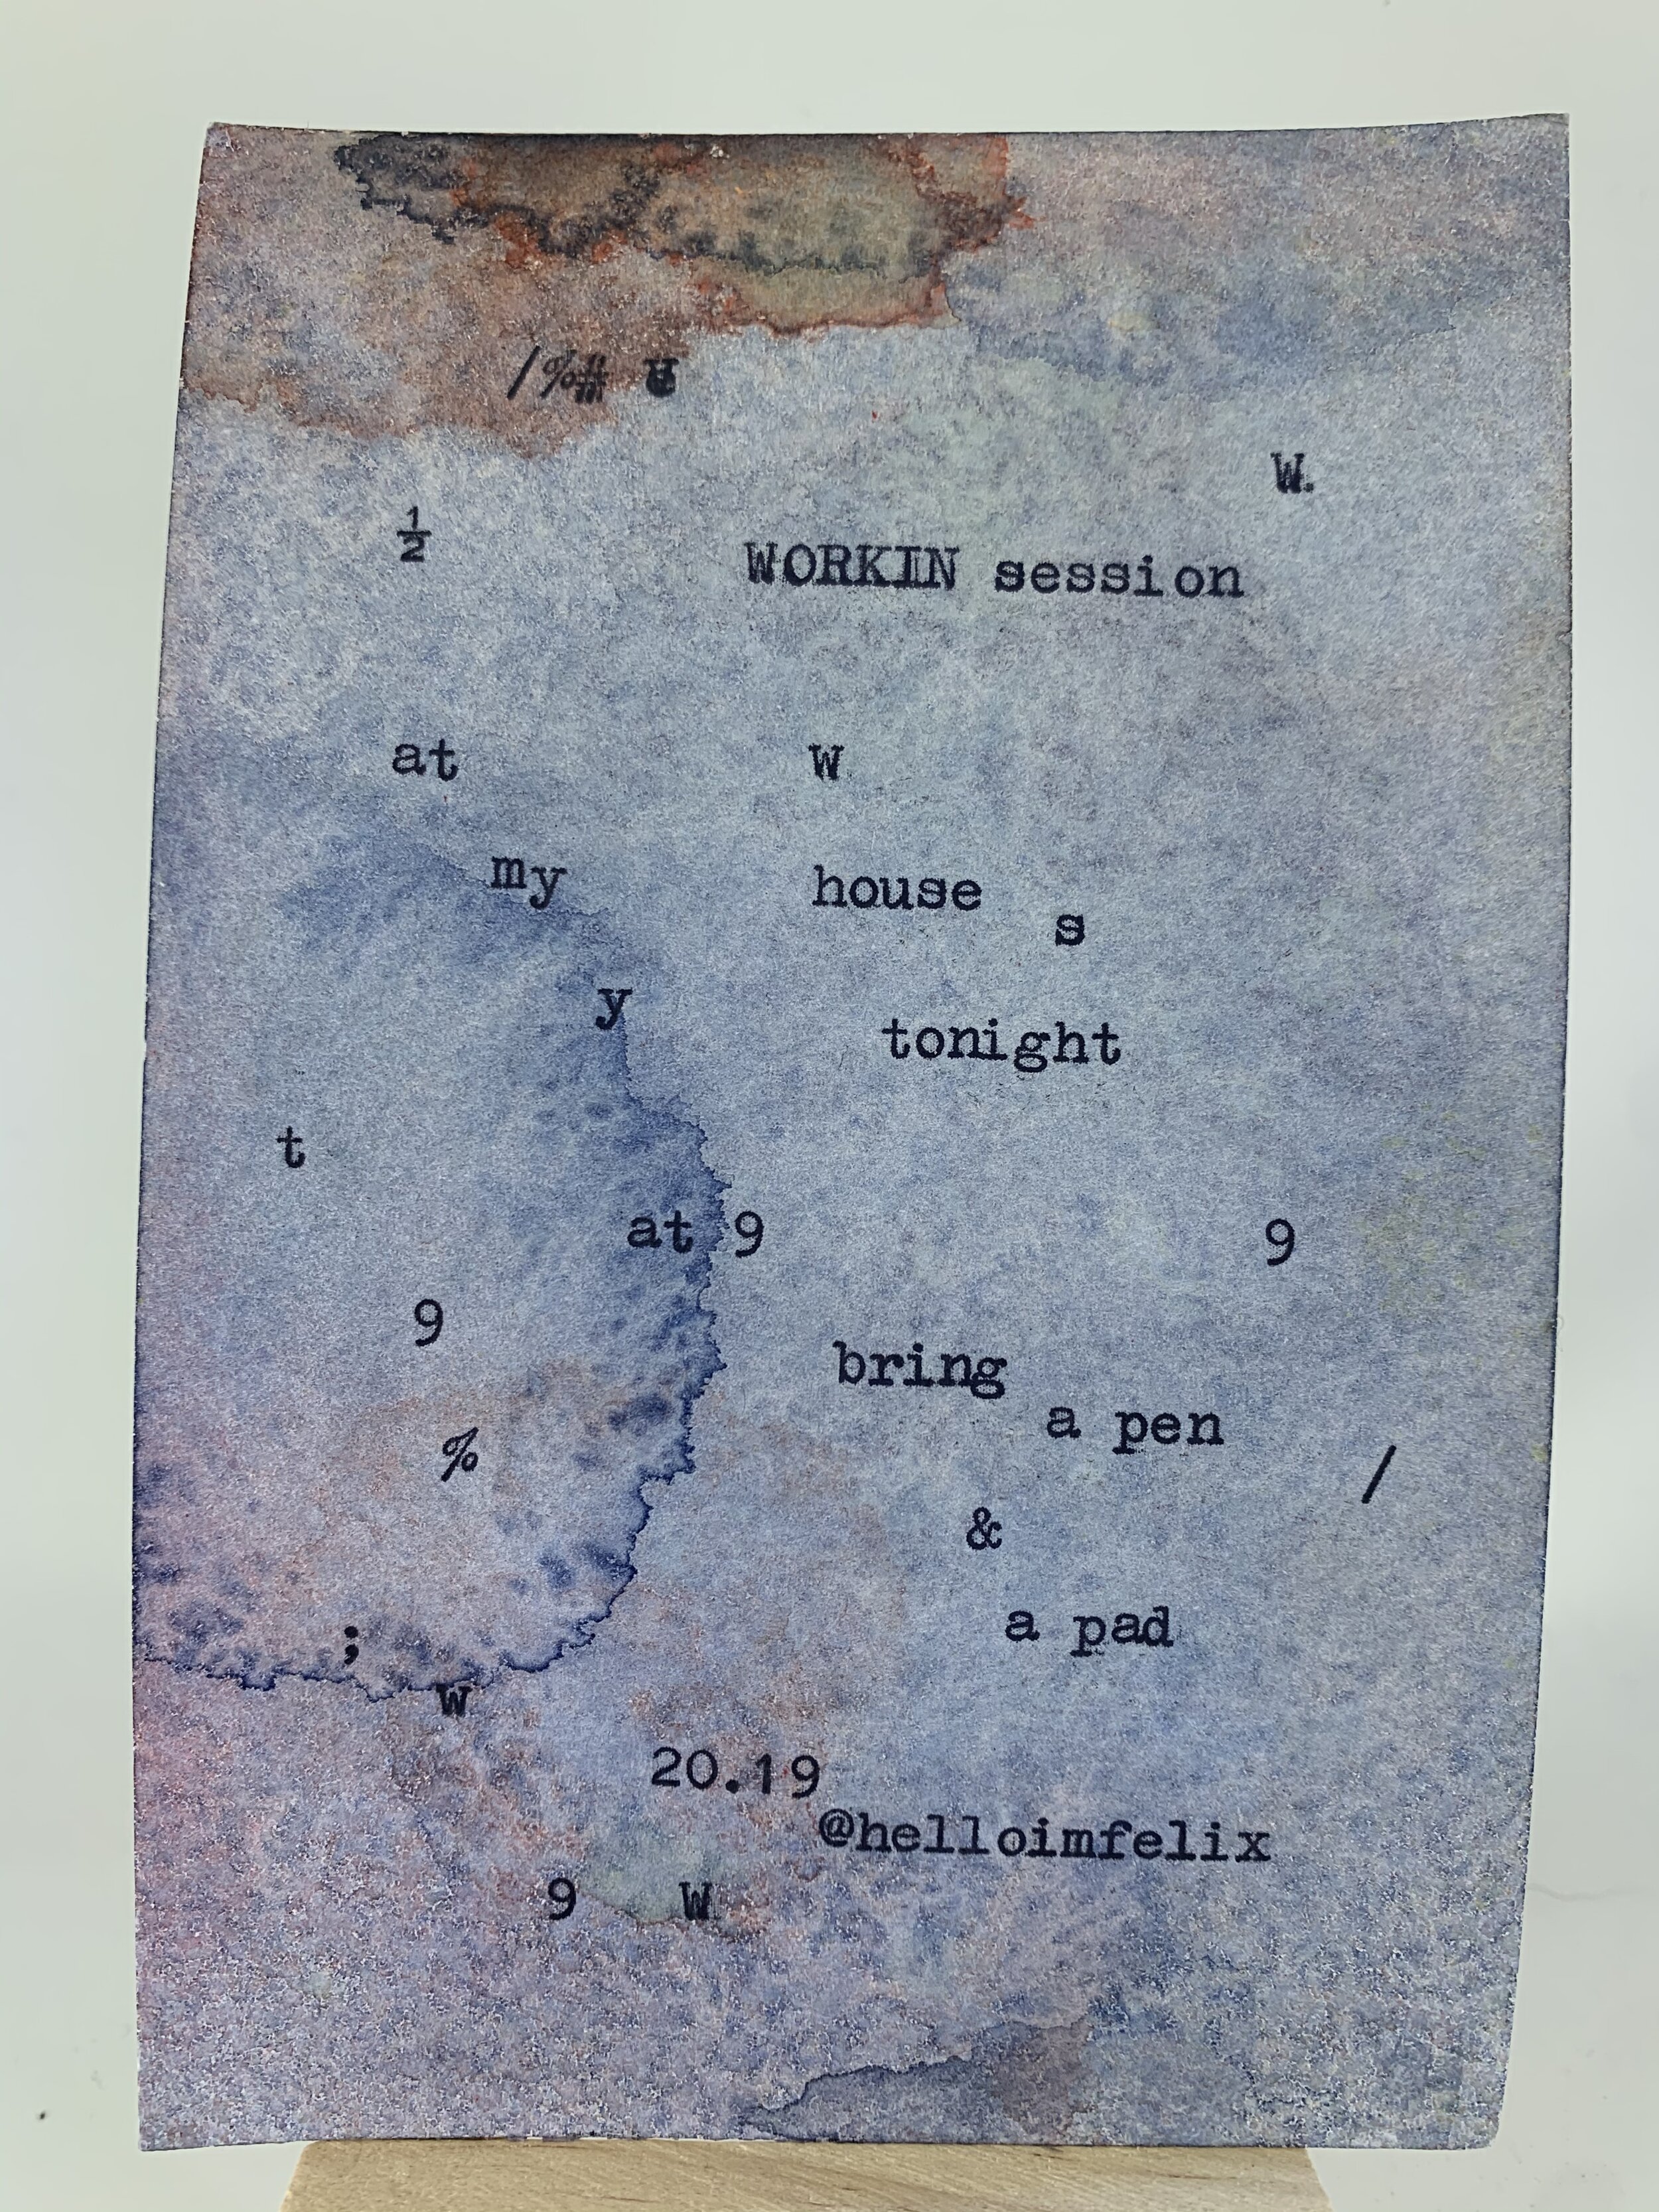 /%#
W.
½
WORKIN session
at w
my house
s
y
tonight
t
at 9 9
9
bring
a pen
% /
&
a pad
;
w
20.19
@helloimfelix
9 W